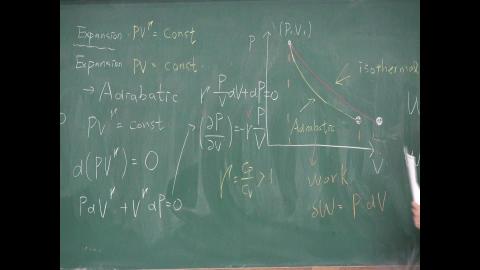 Expansion PV^γ = Const
Expansion PV = const
→ Adrabatic
PV^γ = const
d(PV^γ) = 0
PdV^γ + V^γdP = 0
γ P/V dV + dP = 0
(∂P/∂V) = -γ P/V
γ = Cp/Cv > 1
P
(P₁V₁)
isothermal
Adrabatic
V
work
δW = P dV